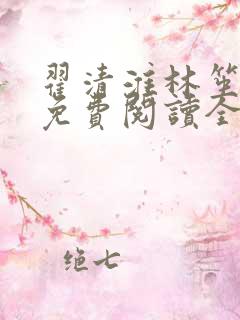 翟清淮林
免費閱讀全
绝七